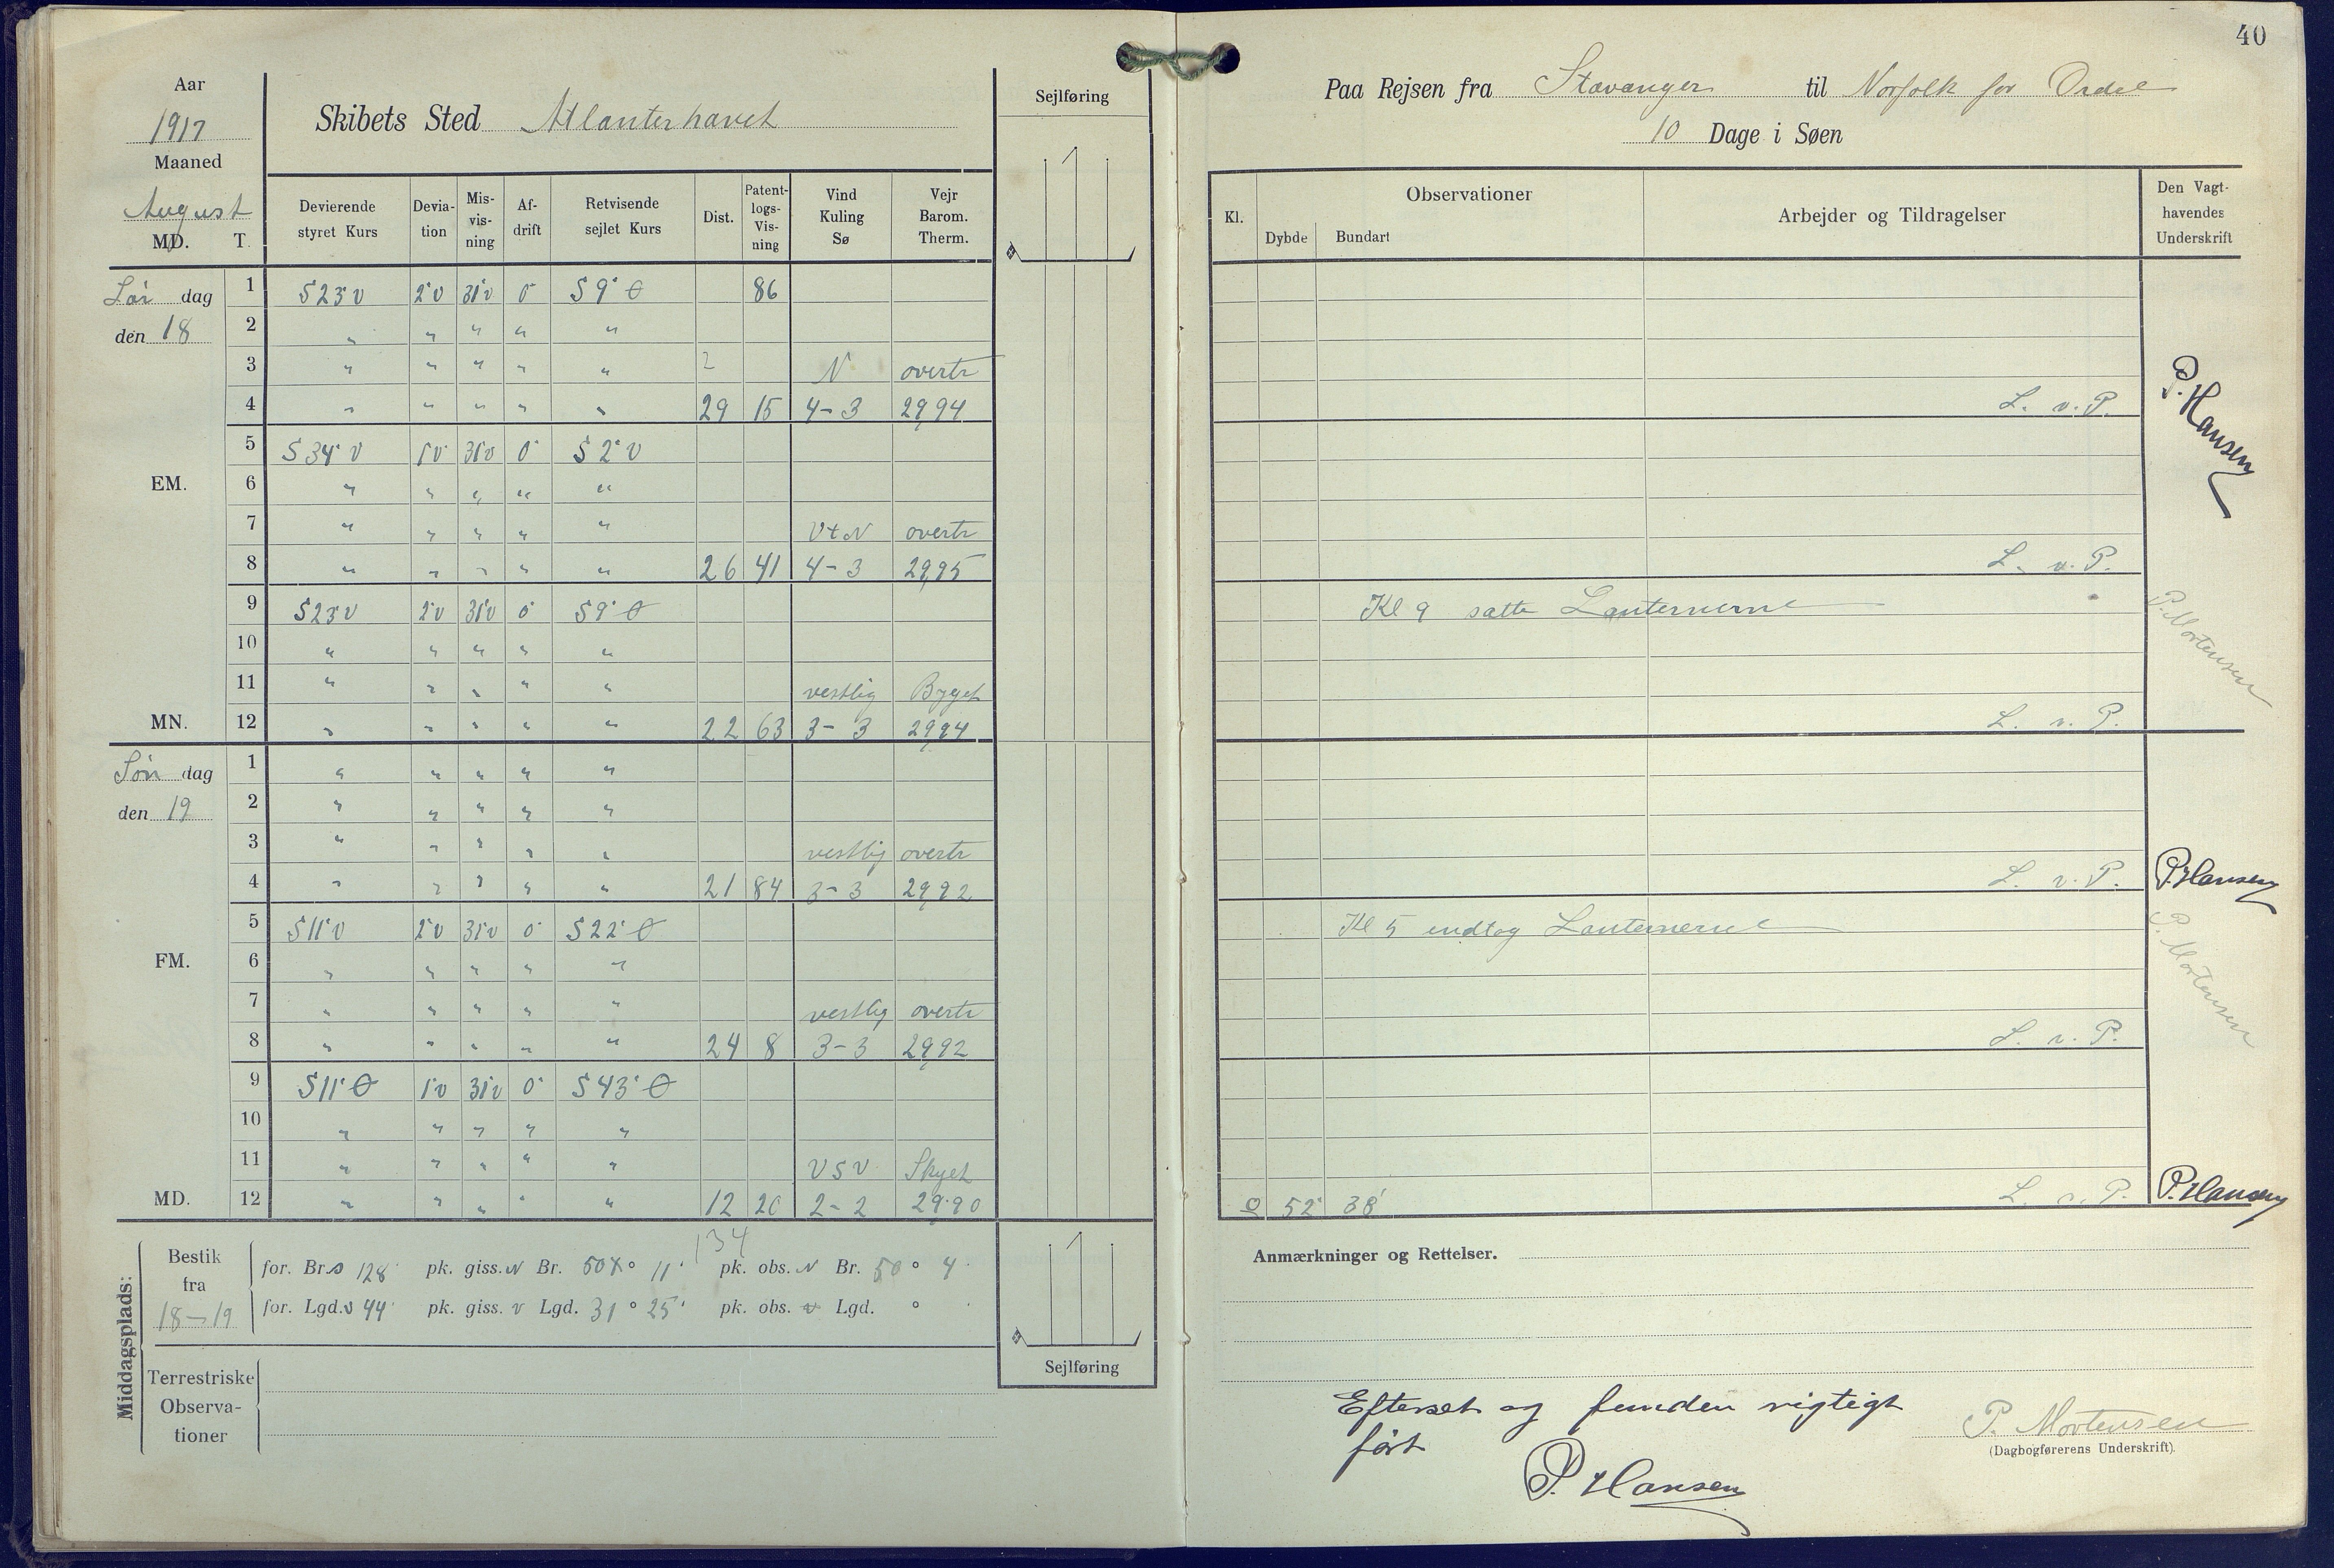 Aar
1917
Maaned
August
MD. T.
Skibets Sted Atlanterhavet
Sejlføring
Devierende styret Kurs | Devia-tion | Mis-vis-ning | Af-drift | Retvisende sejlet Kurs | Dist. | Patent-logs-Vis-ning | Vind Kuling Sø | Vejr Barom. Therm.
Lør dag 1 S 23° V 2° V 31° V 0° S 9° Ø 86
den 18 2 " " " " "
3 " " " " " N overtr
4 " " " " " 29 15 4-3 29,94
5 S 34° V 1° V 31° V 0° S 2° V
EM. 6 " " " " "
7 " " " " " VtN overtr
8 " " " " " 26 41 4-3 29,95
9 S 23° V 2° V 31° V 0° S 9° Ø
10 " " " " "
11 " " " " " vestlig Byget
MN. 12 " " " " " 22 63 3-3 29,94
Søn dag 1 " " " " "
den 19 2 " " " " "
3 " " " " " vestlig overtr
4 " " " " " 21 84 3-3 29,92
5 S 11° V 2° V 31° V 0° S 22° Ø
FM. 6 " " " " "
7 " " " " " vestlig overtr
8 " " " " " 24 8 3-3 29,92
9 S 11° Ø 1° V 31° V 0° S 43° Ø
10 " " " " "
11 " " " " " VSV Skyet
MD. 12 " " " " " 12 20 2-2 29,90
134
Middagsplads:
Bestik fra 18-19
for. Br. S 128' pk. giss. N Br. 50 ° 11' pk. obs. N Br. 50 ° 4'
for. Lgd. V 44' pk. giss. V Lgd. 31 ° 25' pk. obs. V Lgd. °
Sejlføring
Terrestriske Observa-tioner
40
Paa Rejsen fra Stavanger til Norfolk for Order
10 Dage i Søen
Kl. | Observationer | Dybde | Bundart | Arbejder og Tildragelser | Den Vagt-havendes Underskrift
L. v. P. P. Hansen
L. v. P.
Kl 9 satte Lanternerne
P. Mortensen
L. v. P.
L. v. P. P. Hansen
Kl 5 indtog Lanternerne
P. Mortensen
L. v. P.
52° 38' L. v. P. P. Hansen
Anmærkninger og Rettelser.
Efterset og funden rigtigt
ført
P. Hansen
P. Mortensen
(Dagbogførerens Underskrift).